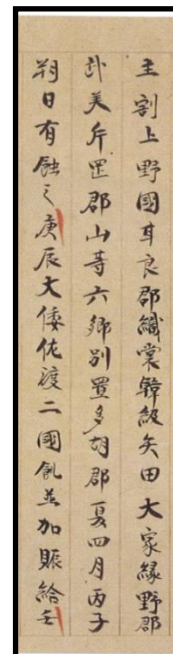 主割上野國甘良郡織裳韓級矢田大家緑野郡
武美片罡郡山等六鄉別置多胡郡夏四月丙子
朔日有蝕之庚辰大倭佐渡二國飢並加賑給壬